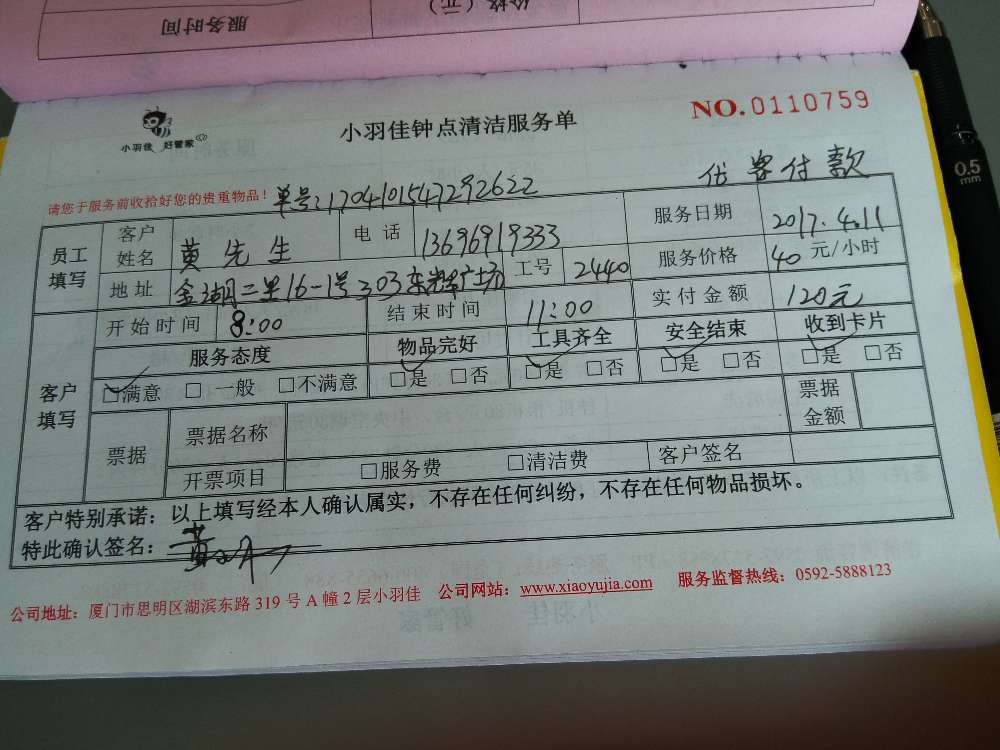 价格（元）
服务时间
小羽佳 好管家
小羽佳钟点清洁服务单
NO.0110759
请您于服务前收拾好您的贵重物品！
单号:1704101547292622
客付款
员工填写
客户姓名
黄先生
电话
13696919333
服务日期
2017.4.11
地址
金湖二里16-1号303东辉广场
工号
2440
服务价格
40元/小时
客户填写
开始时间
8:00
结束时间
11:00
实付金额
120元
服务态度
物品完好
工具齐全
安全结束
收到卡片
☑满意 □一般 □不满意
☑是 □否
☑是 □否
☑是 □否
☑是 □否
票据
票据名称
票据金额
开票项目
□服务费 □清洁费
客户签名
客户特别承诺：以上填写经本人确认属实，不存在任何纠纷，不存在任何物品损坏。
特此确认签名：黄
公司地址：厦门市思明区湖滨东路 319 号 A 幢 2 层小羽佳 公司网站：www.xiaoyujia.com 服务监督热线：0592-5888123
0.5
mm